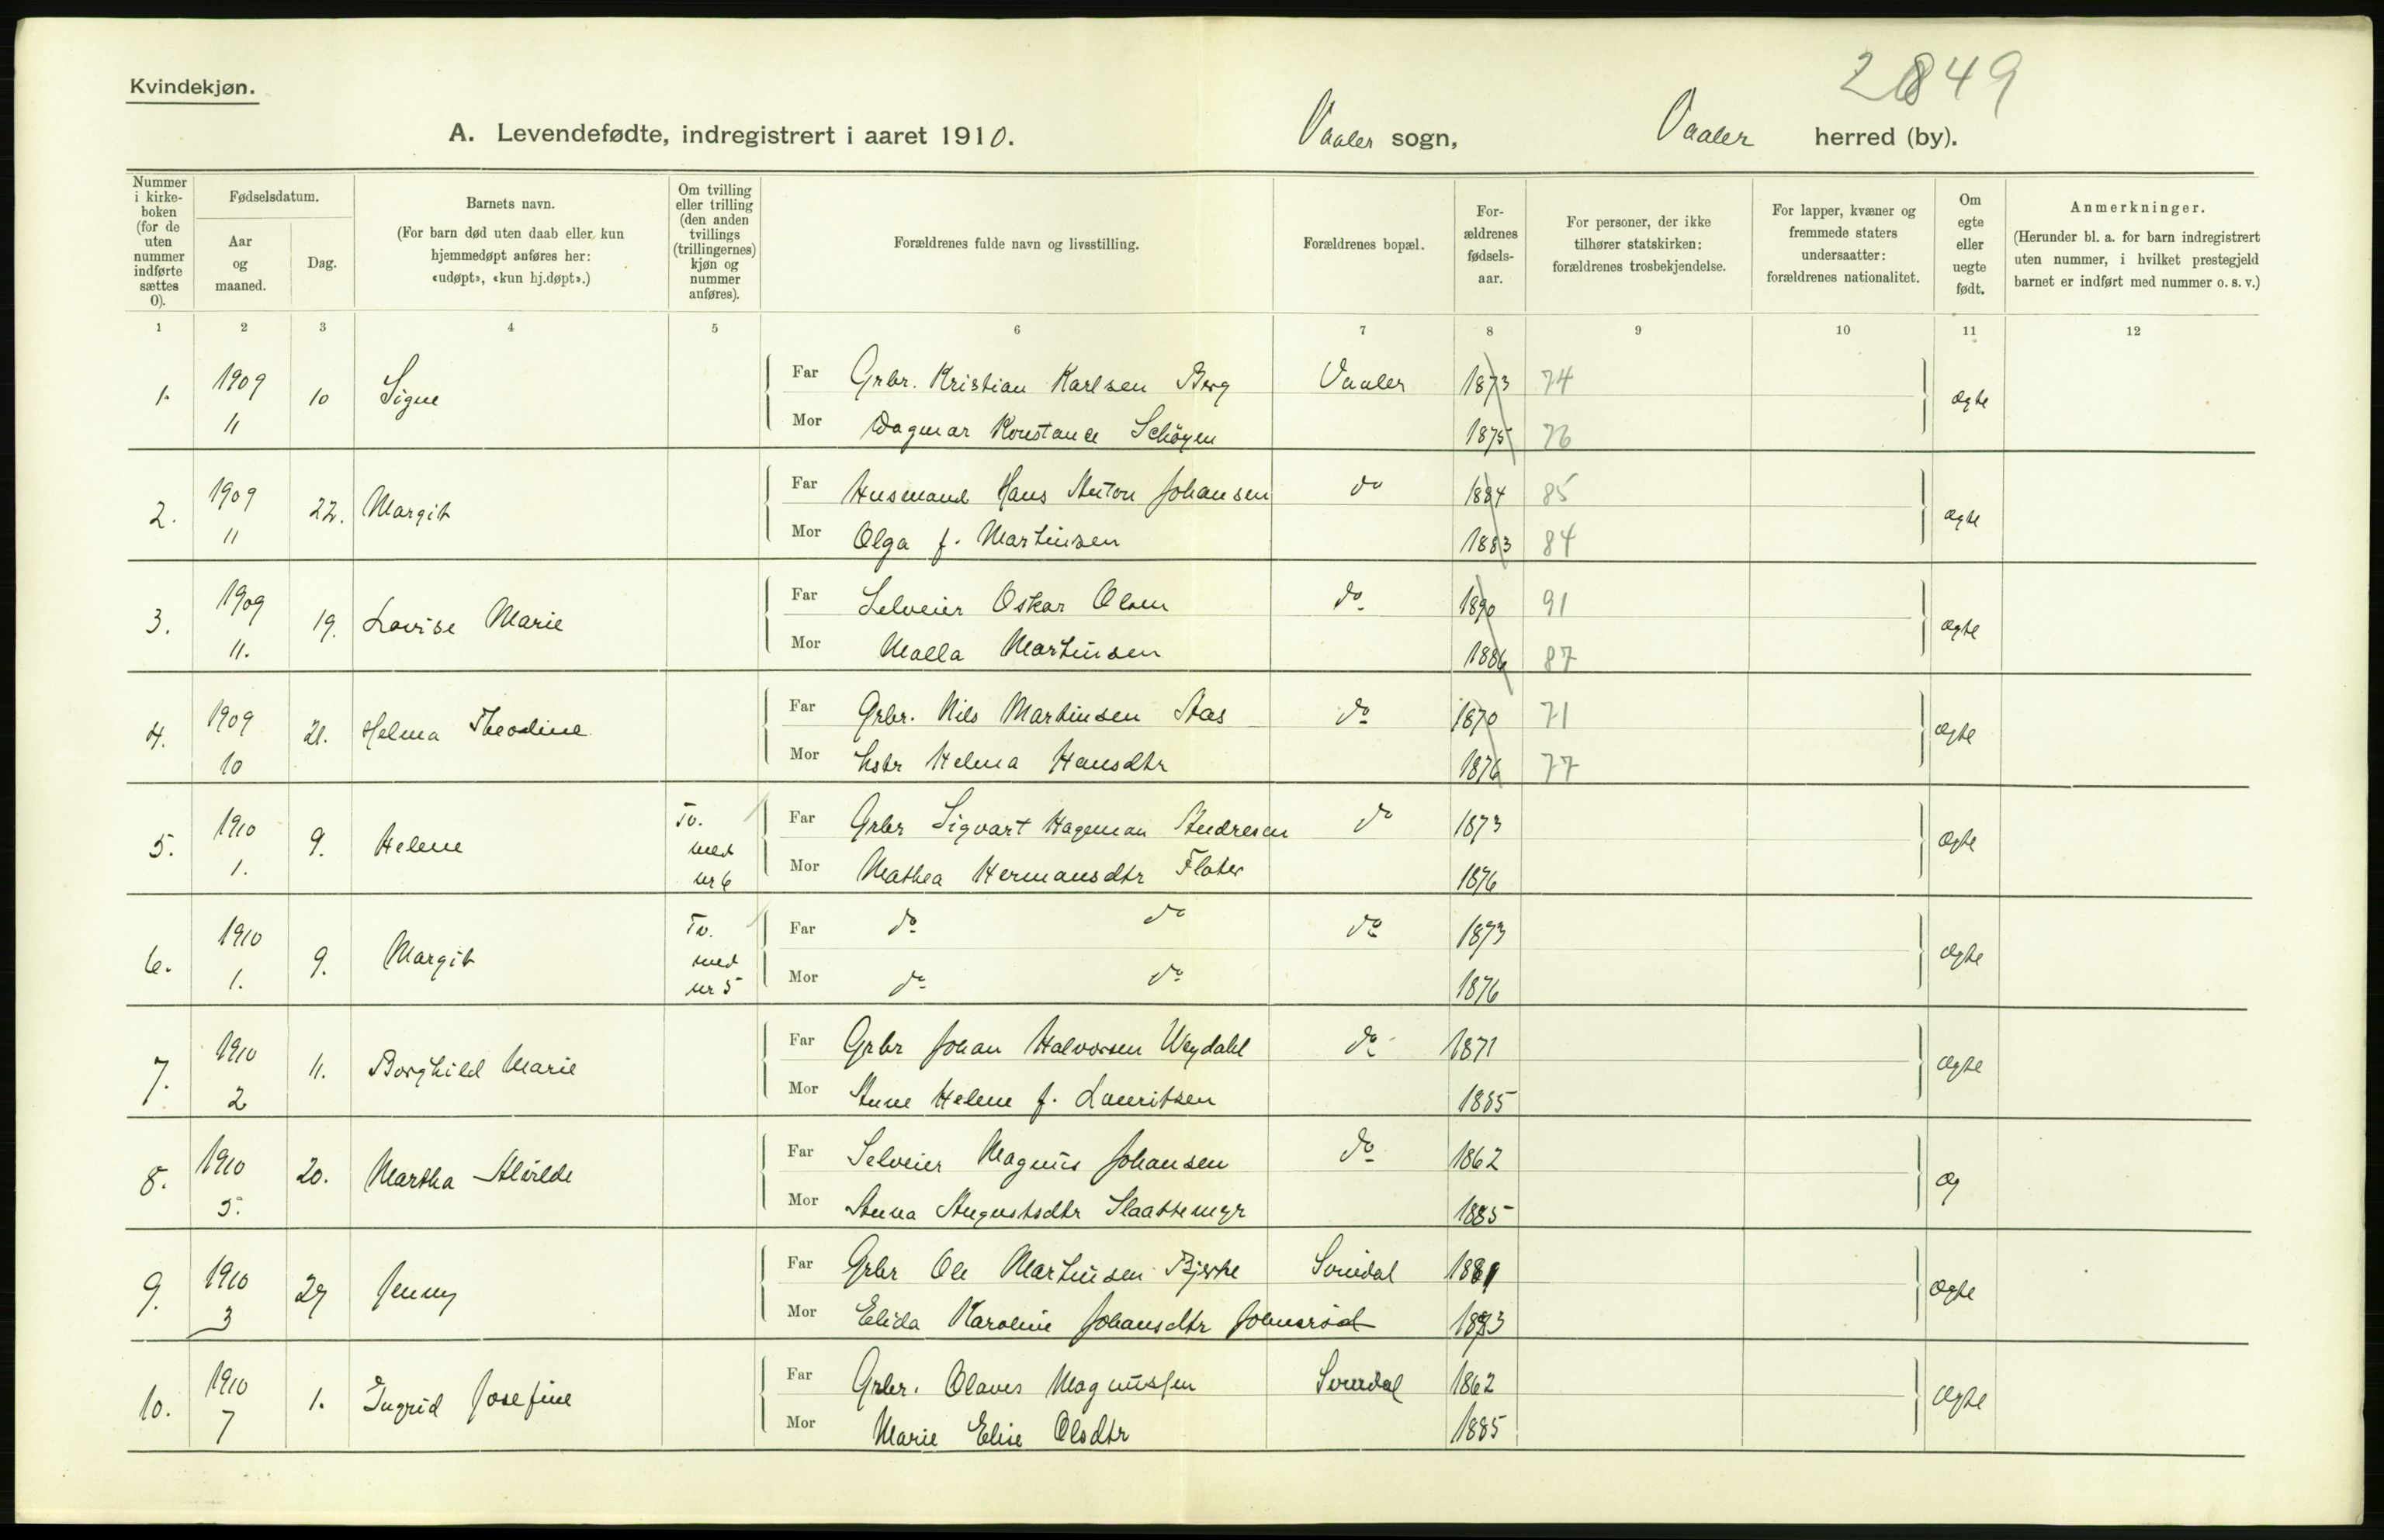 2849
Kvindekjøn.
A. Levendefødte, indregistrert i aaret 1910. Vaaler sogn, Vaaler herred (by).
Nummer i kirke-boken (for de uten nummer indførte sættes 0).
Fødselsdatum.
Aar og maaned.
Dag.
Barnets navn.
(For barn død uten daab eller kun hjemmedøpt anføres her: «udøpt», «kun hj.døpt».)
Om tvilling eller trilling (den anden tvillings (trillingernes) kjøn og nummer anføres).
Forældrenes fulde navn og livsstilling.
Forældrenes bopæl.
For-ældrenes fødsels-aar.
For personer, der ikke tilhører statskirken: forældrenes trosbekjendelse.
For lapper, kvæner og fremmede staters undersaatter: forældrenes nationalitet.
Om egte eller uegte født.
Anmerkninger.
(Herunder bl. a. for barn indregistrert uten nummer, i hvilket prestegjeld barnet er indført med nummer o. s. v.)
1 2 3 4 5 6 7 8 9 10 11 12
1. 1909 11 10 Signe
Far Grbr. Kristian Karlsen Berg Vaaler 1873 74
Mor Dagmar Konstance Schöyen 1875 76
ægte
2. 1909 11 22. Margit
Far Husmand Hans Anton Johansen do 1884 85
Mor Olga f. Martinsen 1883 84
ægte
3. 1909 11. 19. Lovise Marie
Far Selveier Oskar Olsen do 1890 91
Mor Malla Martinsen 1886 87
ægte
4. 1909 10 21. Helma Theodine
Far Grbr. Nils Martinsen Aas do 1870 71
Mor Hstr Helma Hansdtr 1876 77
ægte
5. 1910 1. 9. Helene
Tv. med nr 6
Far Grbr Sigvart Hageman Andresen do 1873
Mor Mathea Hermansdtr Flater 1876
ægte
6. 1910 1. 9. Margit
Tv. med nr 5
Far do do do 1873
Mor do do 1876
ægte
7. 1910 2 11. Borghild Marie
Far Grbr Johan Halvorsen Weydahl do 1871
Mor Anne Helene f. Lauritsen 1885
ægte
8. 1910 5. 20. Martha Alvilde
Far Selveier Magnus Johansen do 1862
Mor Anna Augustsdtr Slaattemyr 1885
æg
9. 1910 3 27 Jenny
Far Grbr Ole Martinsen Bjerke Svindal 1881
Mor Elida Karoline Johansdtr Johnsrød 1883
ægte
10. 1910 7 1. Ingrid Josefine
Far Grbr. Olaves Magnussen Svindal 1862
Mor Marie Elise Olsdtr 1885
ægte